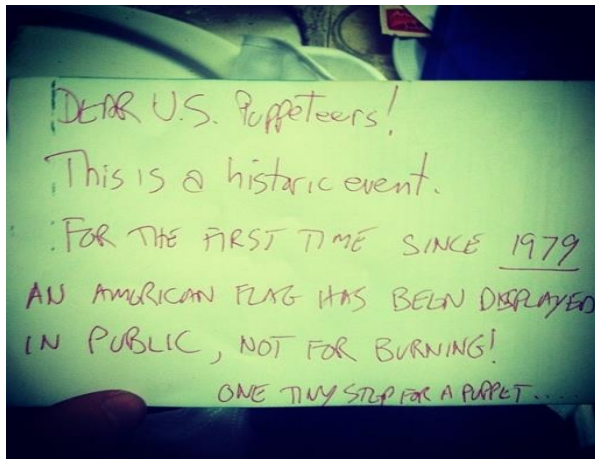 DEAR U.S. Puppeteers!
This is a historic event.
FOR THE FIRST TIME SINCE 1979
AN AMERICAN FLAG HAS BEEN DISPLAYED
IN PUBLIC, NOT FOR BURNING!
ONE TINY STEP FOR A PUPPET....